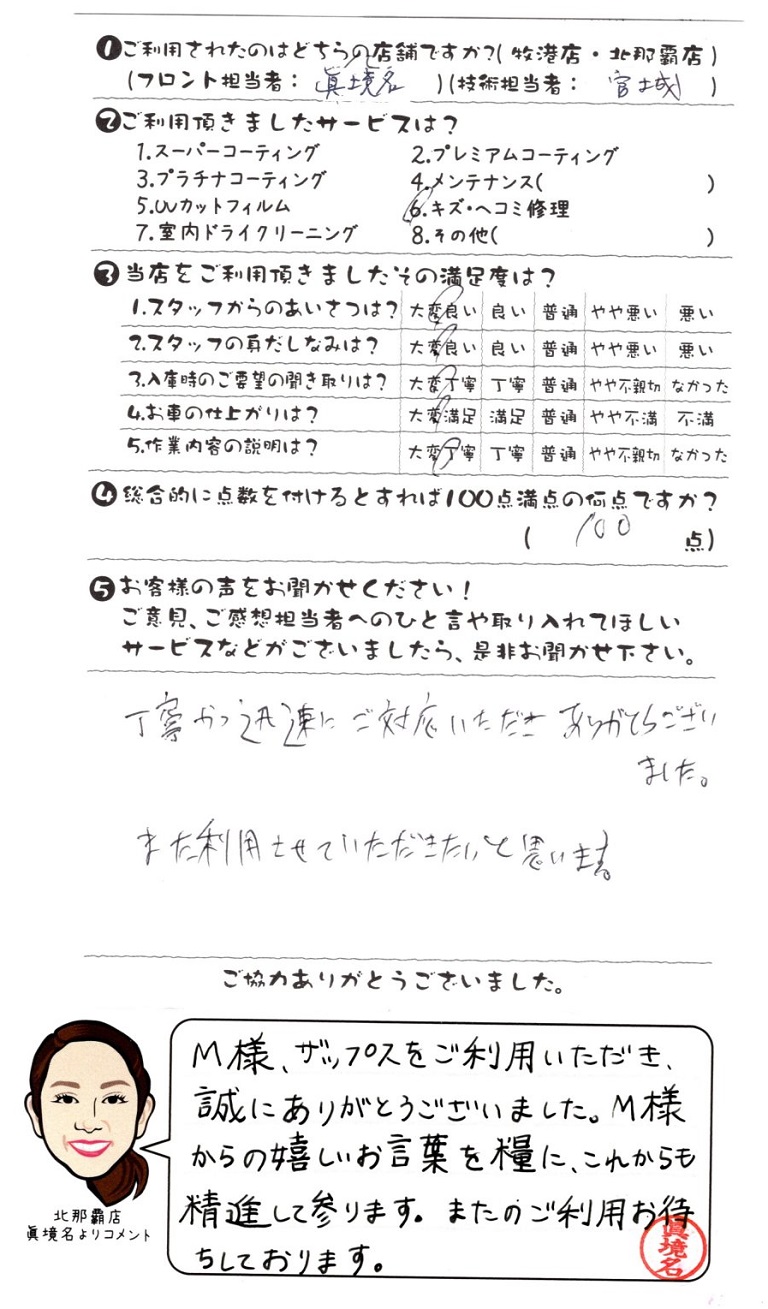 ❶ご利用されたのはどちらの店舗ですか?(牧港店・北那覇店)
(フロント担当者: 眞境名 )(技術担当者: 宮城 )
❷ご利用頂きましたサービスは?
1.スーパーコーティング 2.プレミアムコーティング
3.プラチナコーティング 4.メンテナンス( )
5.UVカットフィルム 6.キズ・ヘコミ修理
7.室内ドライクリーニング 8.その他( )
❸当店をご利用頂きましたその満足度は?
1.スタッフからのあいさつは? 大変良い 良い 普通 やや悪い 悪い
2.スタッフの身だしなみは? 大変良い 良い 普通 やや悪い 悪い
3.入庫時のご要望の聞き取りは? 大変丁寧 丁寧 普通 やや不親切 なかった
4.お車の仕上がりは? 大変満足 満足 普通 やや不満 不満
5.作業内容の説明は? 大変丁寧 丁寧 普通 やや不親切 なかった
❹総合的に点数を付けるとすれば100点満点の何点ですか?
( 100 点)
❺お客様の声をお聞かせください!
ご意見、ご感想担当者へのひと言や取り入れてほしい
サービスなどがございましたら、是非お聞かせ下さい。
丁寧かつ迅速にご対応いただき ありがとうござい
ました。
また利用させていただきたいと思います。
ご協力ありがとうございました。
M様、ザップスをご利用いただき、
誠にありがとうございました。M様
からの嬉しいお言葉を糧に、これからも
精進して参ります。またのご利用お待
ちしております。
眞境名
北那覇店
眞境名よりコメント